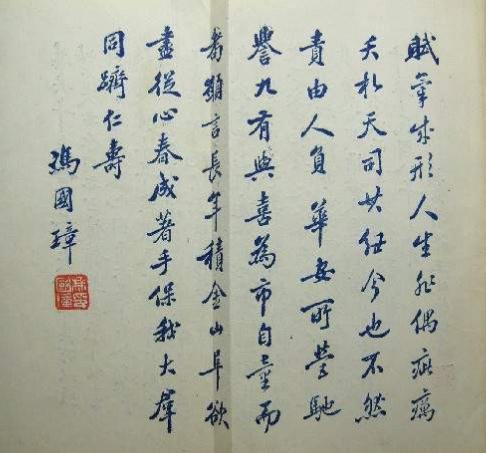 賦氣成形人生非偶疵癘
夭札天司其紐今也不然
責由人負華安所營馳
譽九有與喜為市自童而
耇願言長年積金山阜欲
盡從心春成著手保我大群
同躋仁壽
馮國璋